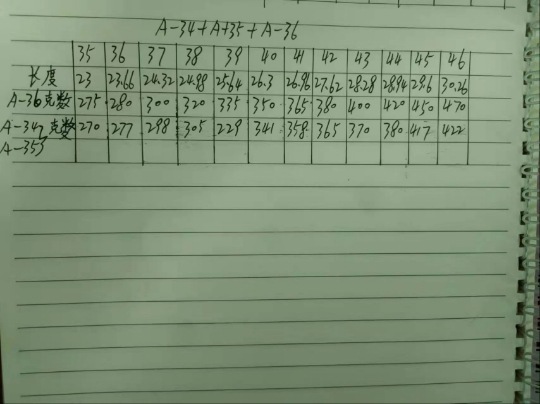 A-34+A+35+A-36
35 36 37 38 39 40 41 42 43 44 45 46
长度 23 23.66 24.32 24.98 25.64 26.3 26.96 27.62 28.28 28.94 29.6 30.26
A-36克数 275 280 300 320 335 350 365 380 400 420 450 470
A-34 克数 270 277 298 305 229 341 358 365 370 380 417 422
A-35